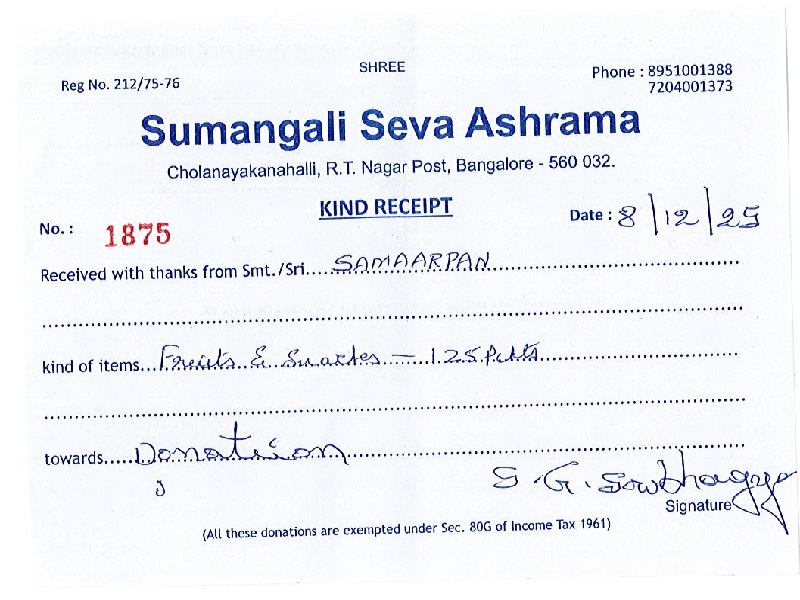 SHREE
Reg No. 212/75-76
Phone : 8951001388
7204001373
Sumangali Seva Ashrama
Cholanayakanahalli, R.T. Nagar Post, Bangalore - 560 032.
KIND RECEIPT
No. : 1875
Date : 8/12/25
Received with thanks from Smt./Sri....SAMAARPAN
kind of items...Fruits & Snacks — 125 Pckts
towards.....Donation
S.G. Sowbhagya
Signature
(All these donations are exempted under Sec. 80G of Income Tax 1961)